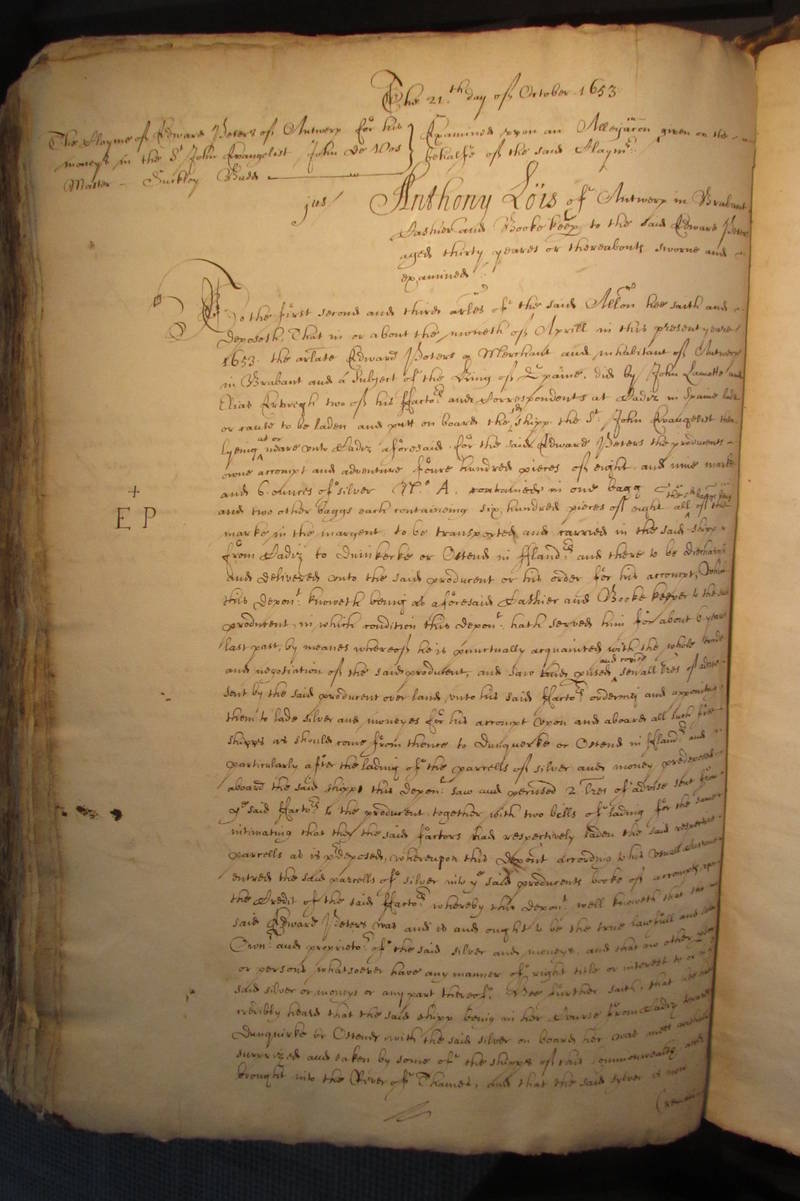 The 21.th day of October 1653
The Clayme of Edward Peters of Antwerp for his
moneys in the S.t John Evangelist John De Vos
Master - Suckley Budd
Examined upon an Alleg͠acon given on the
behalfe of the said Claym.t
jus/
Anthony Löis of Antwerp in Brabant
Cashier and Booke keep to the said Edward Peters
aged thirty yeares or thereabouts sworne and
examined
To the first second and third ar͠les of the said All͠on hee saith and
deposeth, That in or about the moneth of Aprill in this present yeare
1653. the ar͠late Edward Peters a Merchant and inhabitant of Antwerp
in Brabant and a Subject of the King of Spaine, did by John Lamotte and
Elias two of his Facto.rs and Correspondents at Cadiz in Spaine lade
or cause to be laden and putt on board the shipp the S.t John Evangelist then
lyeing at or neare unto Cadiz aforesaid for the said Edward Peters the producents
owne accompt and adventure foure hundred pieces of eight, and nine marke
and 6 ounces of silver N.o A. contained in one bagg
and two other baggs each containeing six hundred pieces of eight all of the
+
E P
marke in the margent to be transported and carried in the said shipp
from Cadiz to Duinkerke or Ostend in Fland.rs and there to be discharged
and delivered unto the said producent or his order for his accompt, which
this depon.t knoweth being as aforesaid Cashier and Booke keeper to the said
producent, in which condition this depon.t hath served him for about 6 yeares
last past, by meanes whereof he is punctually acquainted with the whole trade
and negotiation of the said producent, and saw and p͠used and copied severall l͠res of advise
sent by the said producent over land unto his said Facto.rs ordering and appointing
them to lade silver and moneyes for his accompt upon and aboard all such
shipps as should come from thence to Dunquerke or Ostend in Fland.rs and
particularly after the lading of the parcells of silver and money predeposed
aboard the said shipp this depon.t saw and perused 2 l͠res of advise sent from
y.e said Facto.rs to the producent together with two bills of lading for the same
intimating that they the said factors had respectively laden the said respective
parcells as is p͠deposed, whereupon this depon.t according to his usuall
entred the said parcells of silver into y.e said producents booke of accompts
the Credit of the said Facto.rs whereby this depon.t well knoweth that the
said Edward Peters was and is and ought to be the true lawfull and
Own.r and proprieto.r of the said silver and moneys, and that no other
or persons whatsoever have any manner of right title or interest to
said silver or moneys or any part thereof. Hee further saith, that
credibly heard that the said shipp being in her Course from Cadiz towards
Dunquirke or Ostend with the said silver on board her was mett
surprized and taken by some of the shipps of this Commonwealth and
brought into the River of Thames, and that the said sylver is now
(remain